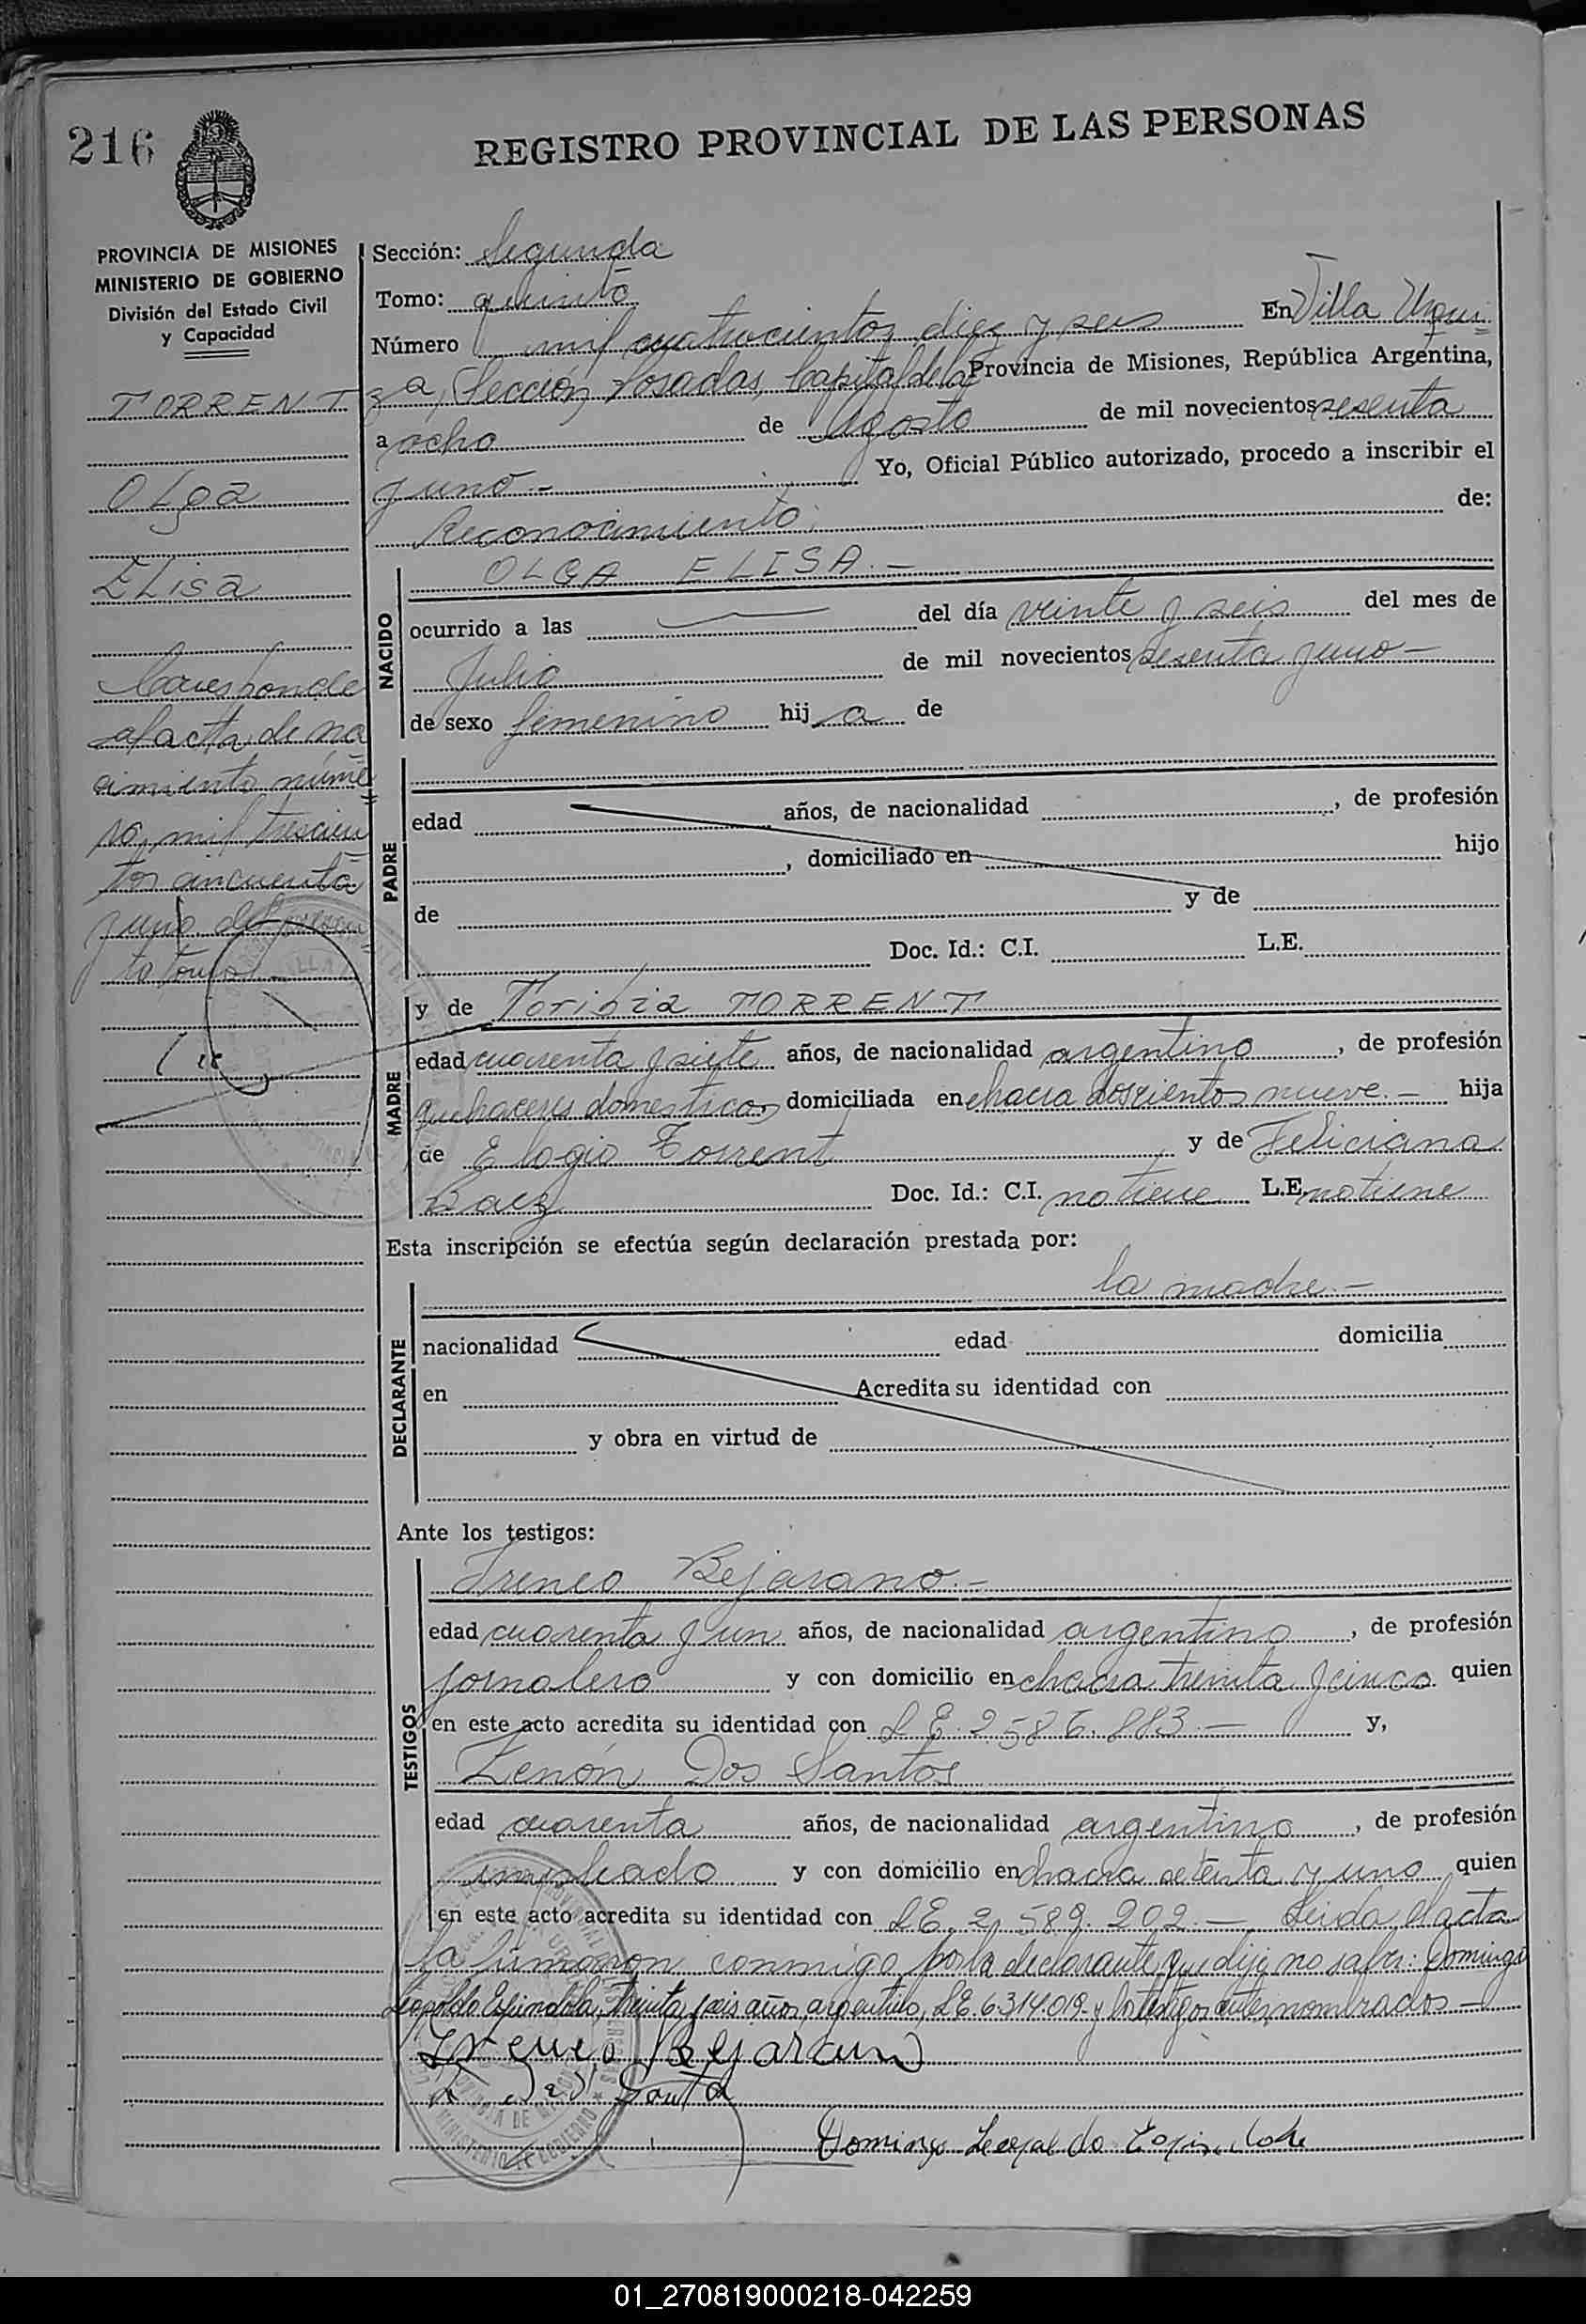 216
REGISTRO PROVINCIAL DE LAS PERSONAS
PROVINCIA DE MISIONES
MINISTERIO DE GOBIERNO
División del Estado Civil
y Capacidad
TORRENT
Olga
Elisa
Corresponde
al acta de na
cimiento núme
ro mil trescien
tos cincuenta
y uno del
tomo
Sección: Segunda
Tomo: quinto
Número mil cuatrocientos diez y seis En Villa Urqui
za, Sección Posadas, Capital de la Provincia de Misiones, República Argentina,
a ocho de Agosto de mil novecientos sesenta
y uno.- Yo, Oficial Público autorizado, procedo a inscribir el
Reconocimiento de:
NACIDO
OLGA ELISA.-
ocurrido a las del día veinte y seis del mes de
Julio de mil novecientos sesenta y uno-
de sexo femenino hija de
PADRE
edad años, de nacionalidad , de profesión
, domiciliado en hijo
de y de
Doc. Id.: C.I. L.E.
MADRE
y de Toribia TORRENT
edad cuarenta y siete años, de nacionalidad argentino, de profesión
quehaceres domesticos domiciliada en chacra doscientos nueve.- hija
de Elogio Torrent y de Feliciana
Baez Doc. Id.: C.I. no tiene L.E. no tiene
Esta inscripción se efectúa según declaración prestada por:
la madre.-
DECLARANTE
nacionalidad edad domicilia
en Acredita su identidad con
y obra en virtud de
Ante los testigos:
TESTIGOS
Ireneo Bejarano.-
edad cuarenta y un años, de nacionalidad argentino, de profesión
jornalero y con domicilio en chacra treinta y cinco quien
en este acto acredita su identidad con L.E. 2.586.883.- y,
Zenón Dos Santos
edad cuarenta años, de nacionalidad argentino, de profesión
empleado y con domicilio en chacra setenta y uno quien
en este acto acredita su identidad con L.E. 2.589.202.- Leida el acta
la firmaron conmigo, por la declarante, que dijo no saber: Domingo
Leopoldo Espindola, treinta y seis años, argentino, L.E. 6.314.019- y los testigos antes nombrados-
Domingo Leopoldo Espindola
01_270819000218-042259